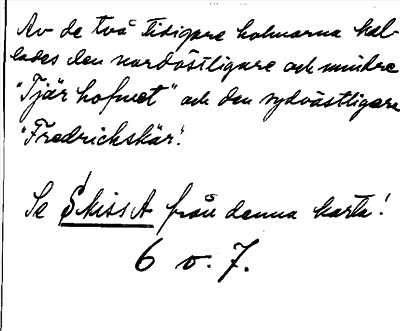 Av de två tidigare holmarna kal-
lades den nordöstligare och mindre
"Tjärhofvet" och den sydvästligare
"Fredrickskär".
Se Skiss A från denna karta!
6 o. 7.